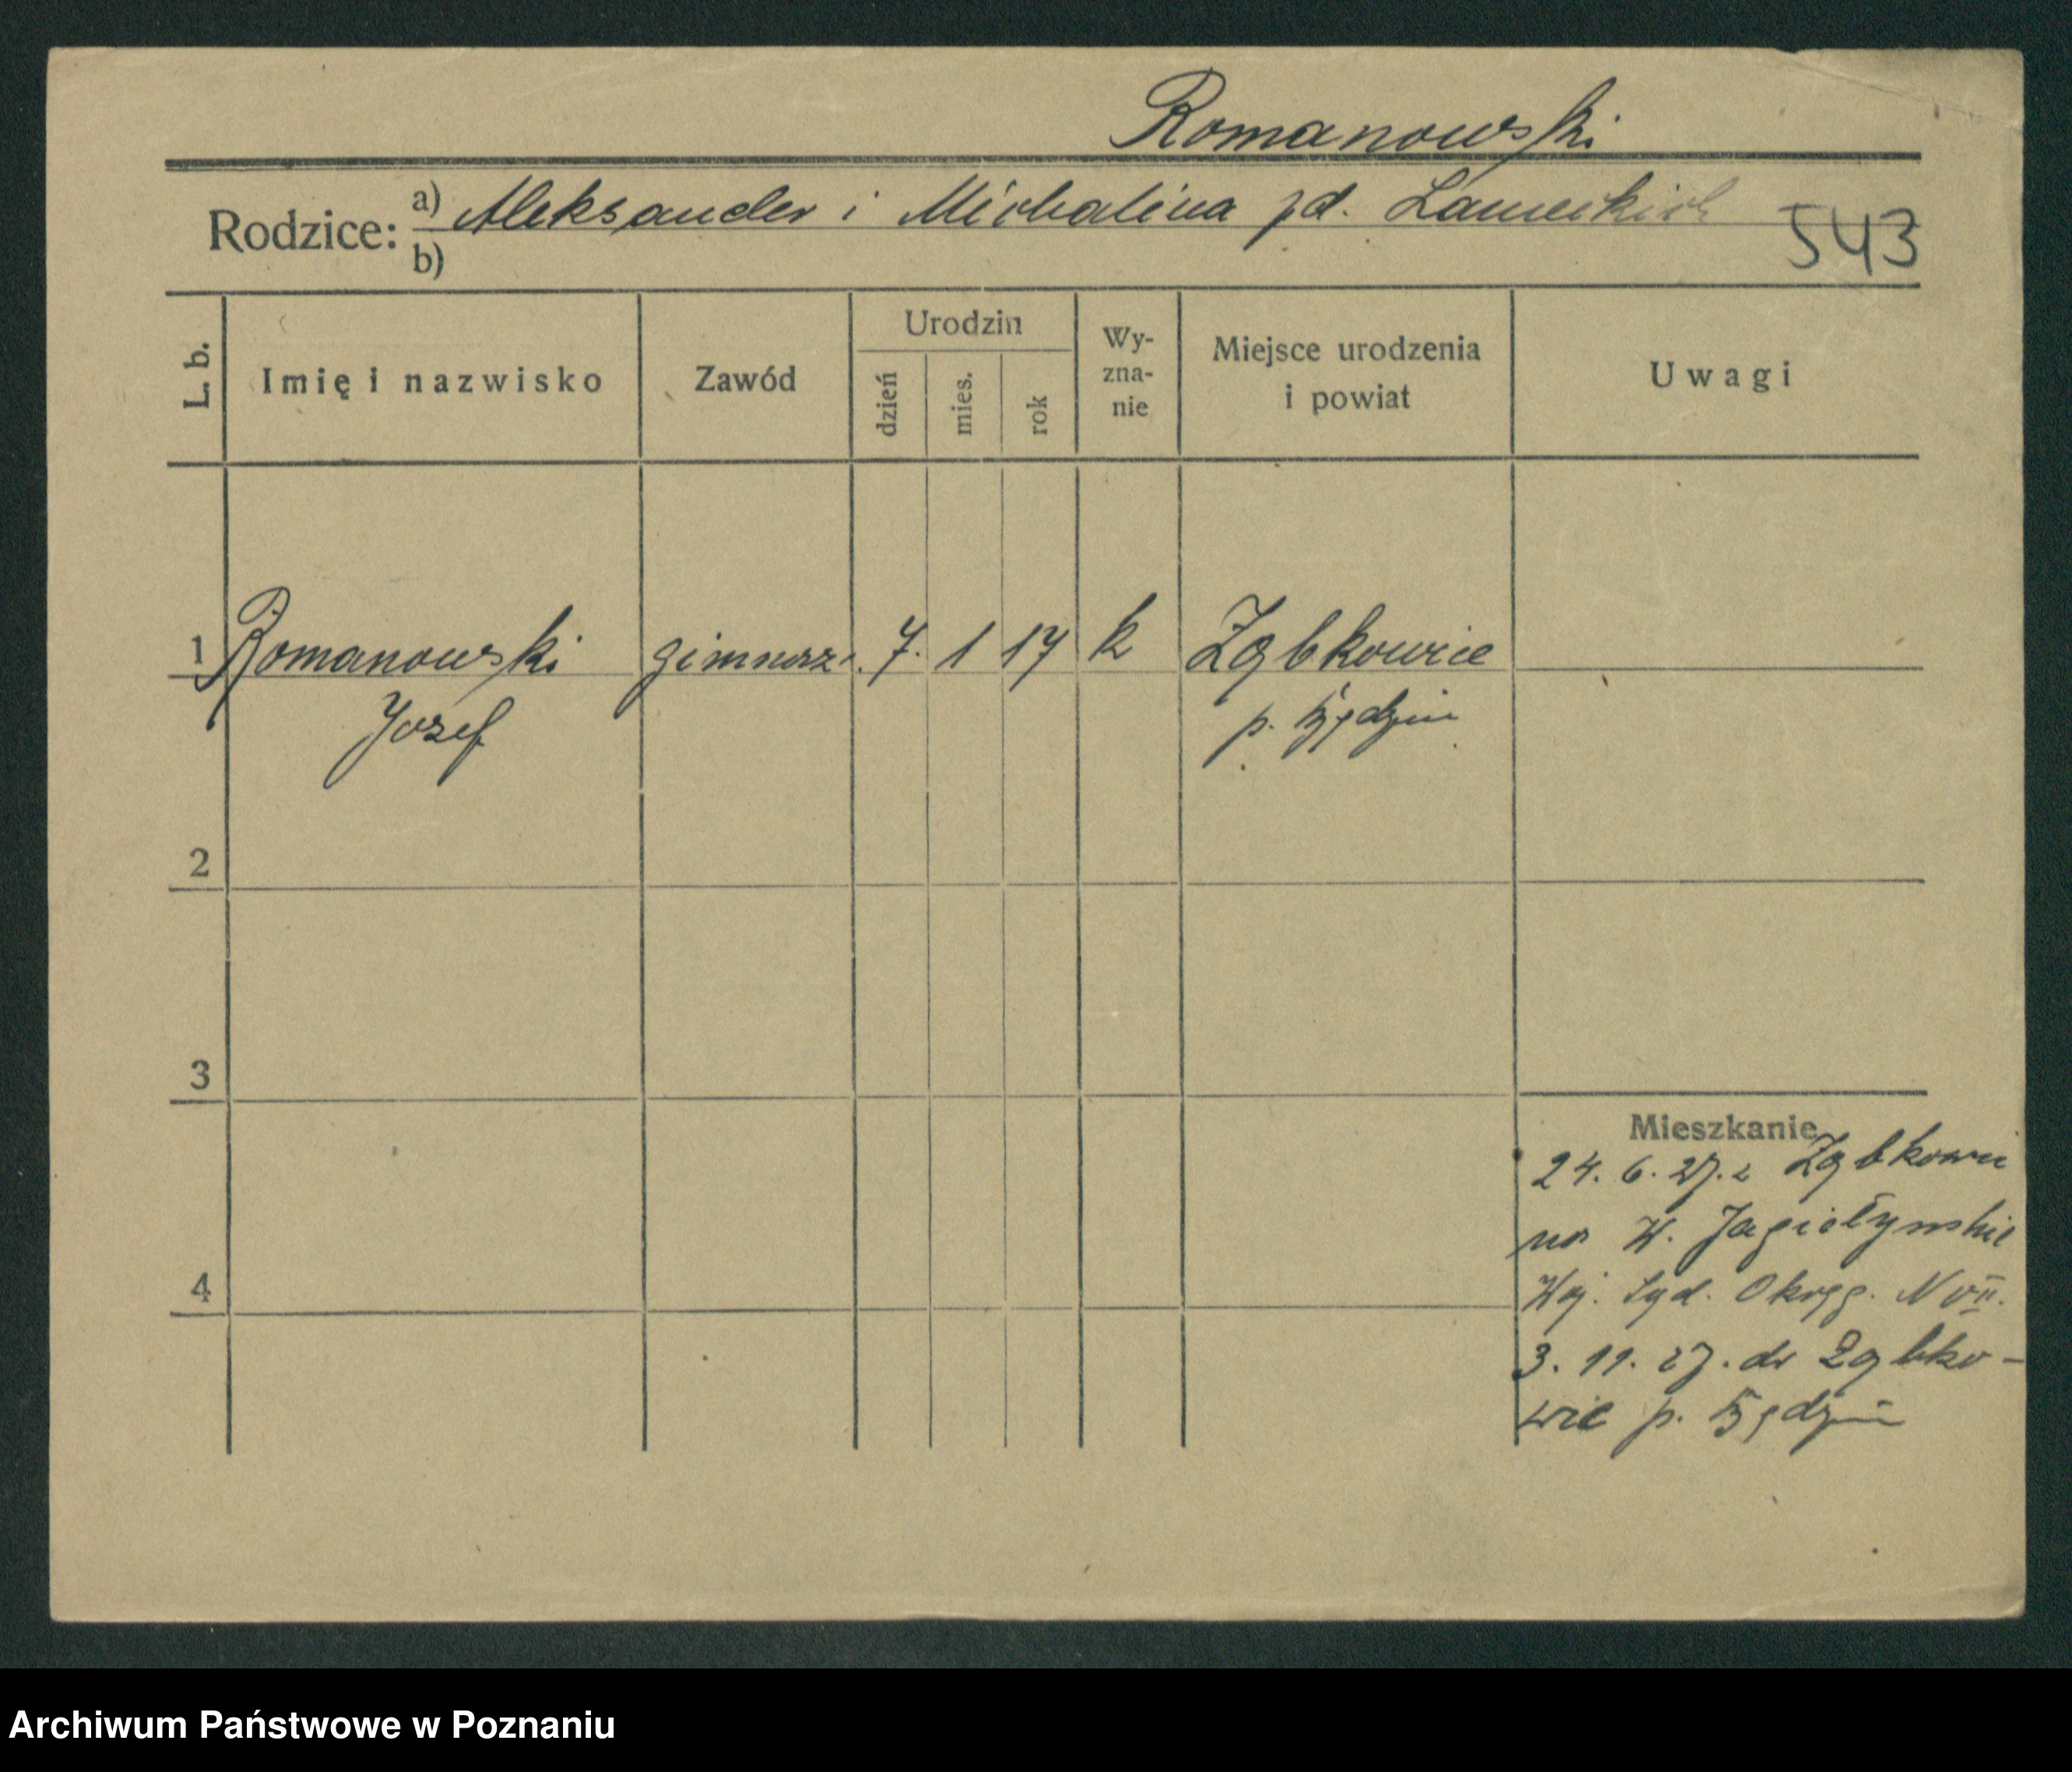 Romanowski
Rodzice: a) Aleksander i Michalina zd. Lameckich
b)
543
L. b. Imię i nazwisko Zawód Urodzin dzień mies. rok Wy-zna-nie Miejsce urodzenia i powiat Uwagi
1 Romanowski gimnaz. 7. 1 17 k Ząbkowice
Jozef p. Będzin
2
3
Mieszkanie
24. 6. 27. z Ząbkowic
na W. Jagiełynskie
4
Woj. Okręg. N VII.
3. 11. 27. do Ząbko-
wic p. Będzin
Archiwum Państwowe w Poznaniu